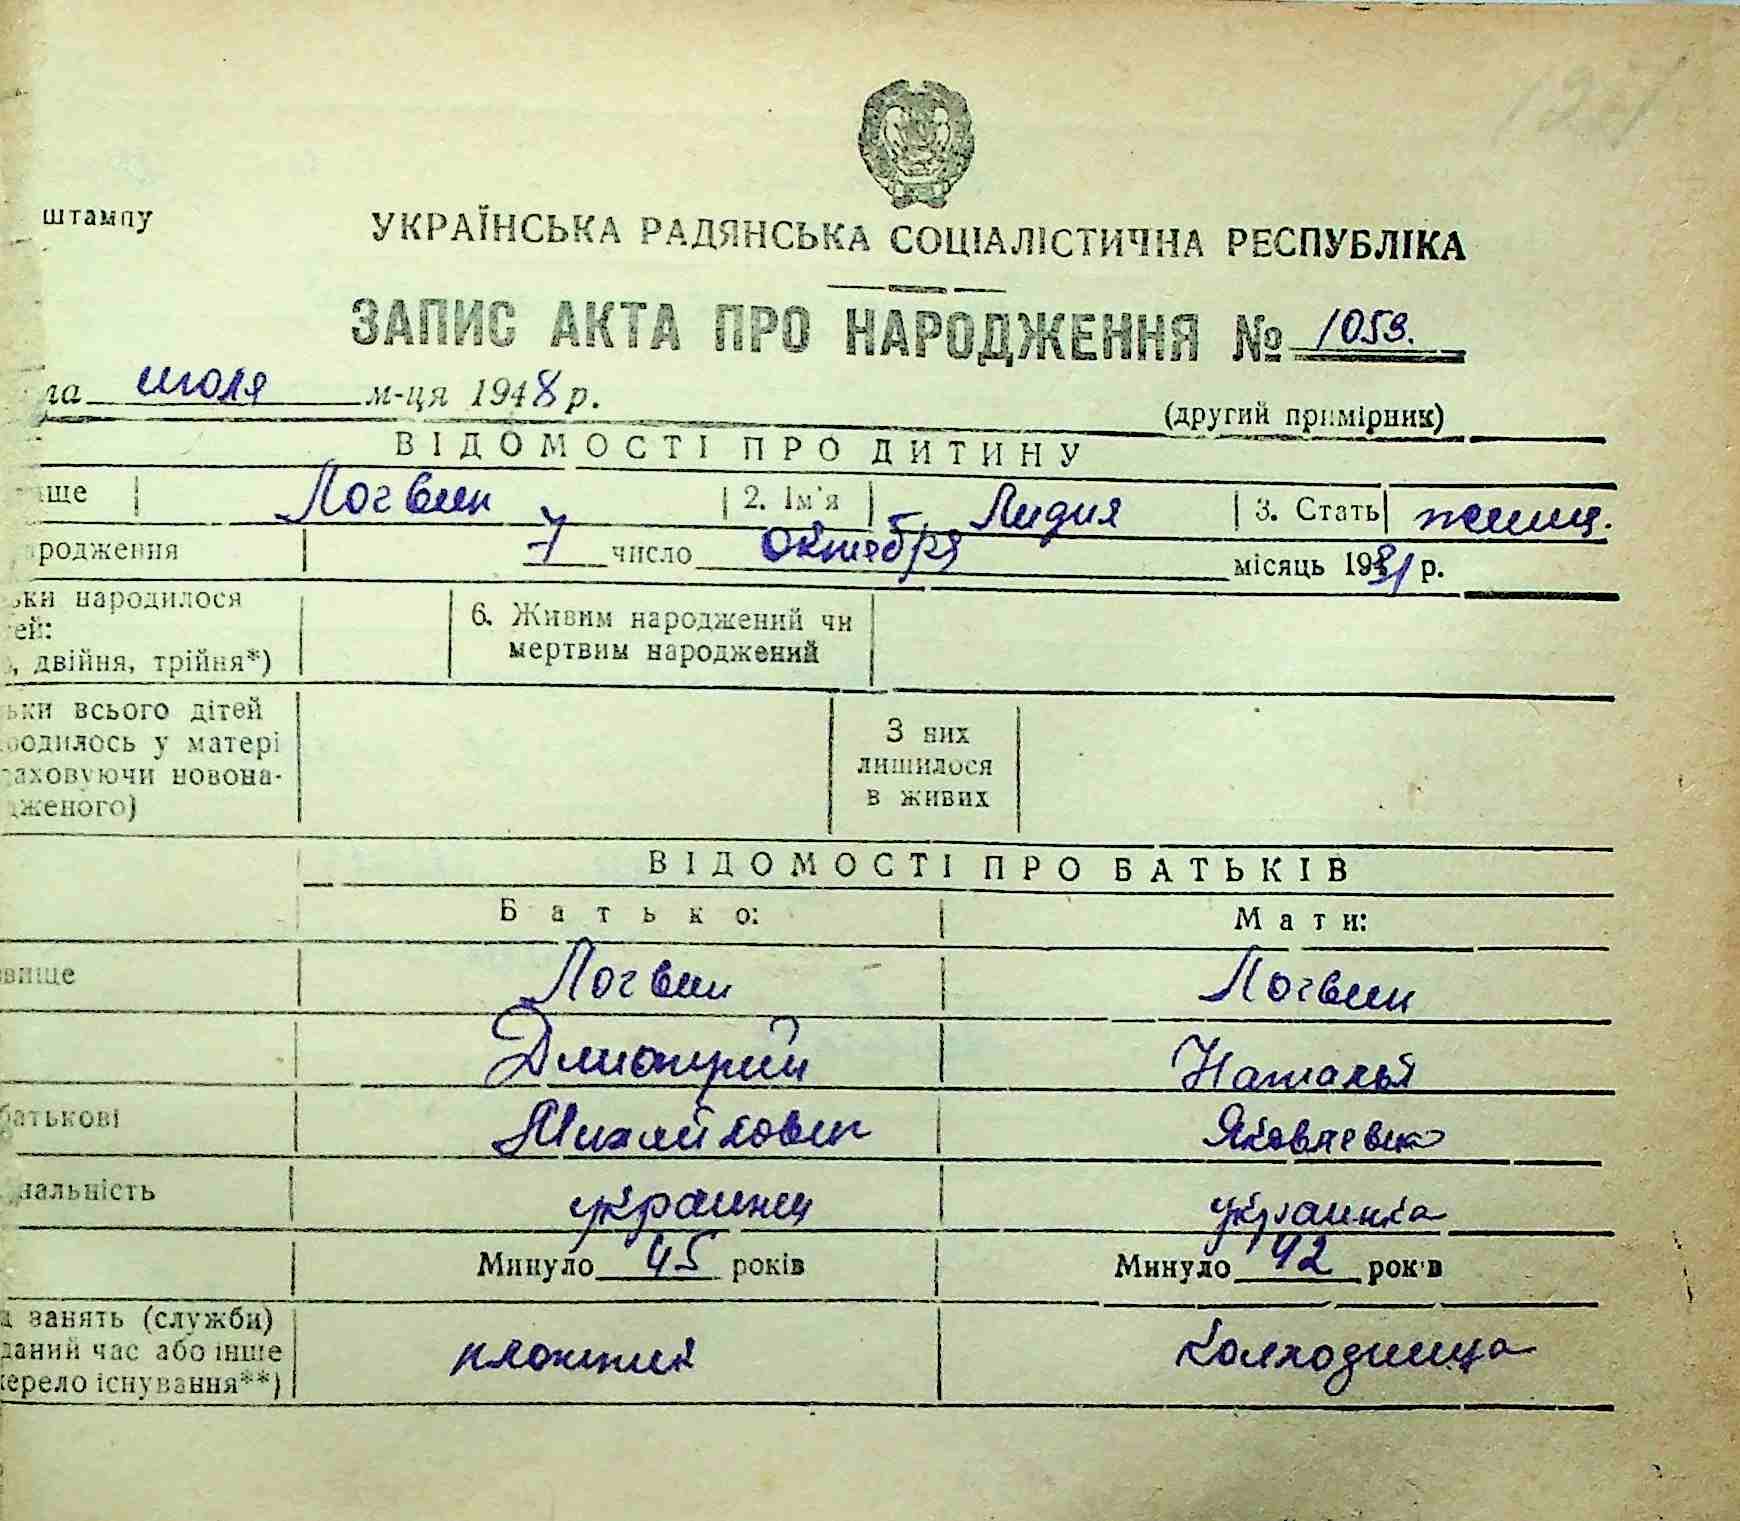 штампу
УКРАЇНСЬКА РАДЯНСЬКА СОЦІАЛІСТИЧНА РЕСПУБЛІКА
ЗАПИС АКТА ПРО НАРОДЖЕННЯ № 1059.
га июля м-ця 1948 р.
(другий примірник)
ВІДОМОСТІ ПРО ДИТИНУ
ище Логвин 2. Ім'я Лидия 3. Стать женщ.
родження 7 число октября місяць 1931 р.
ьки народилося
ей:
, двійня, трійня*)
6. Живим народжений чи
мертвим народжений
ьки всього дітей
родилось у матері
раховуючи новона-
дженого)
З них
лишилося
в живих
ВІДОМОСТІ ПРО БАТЬКІВ
Батько: Мати:
вище Логвин Логвин
Дмитрий Наталья
батькові Михайлович Яковлевна
нальність украинец украинка
Минуло 45 років Минуло 42 років
занять (служби)
даний час або інше
ерело існування**)
плотник колхозница